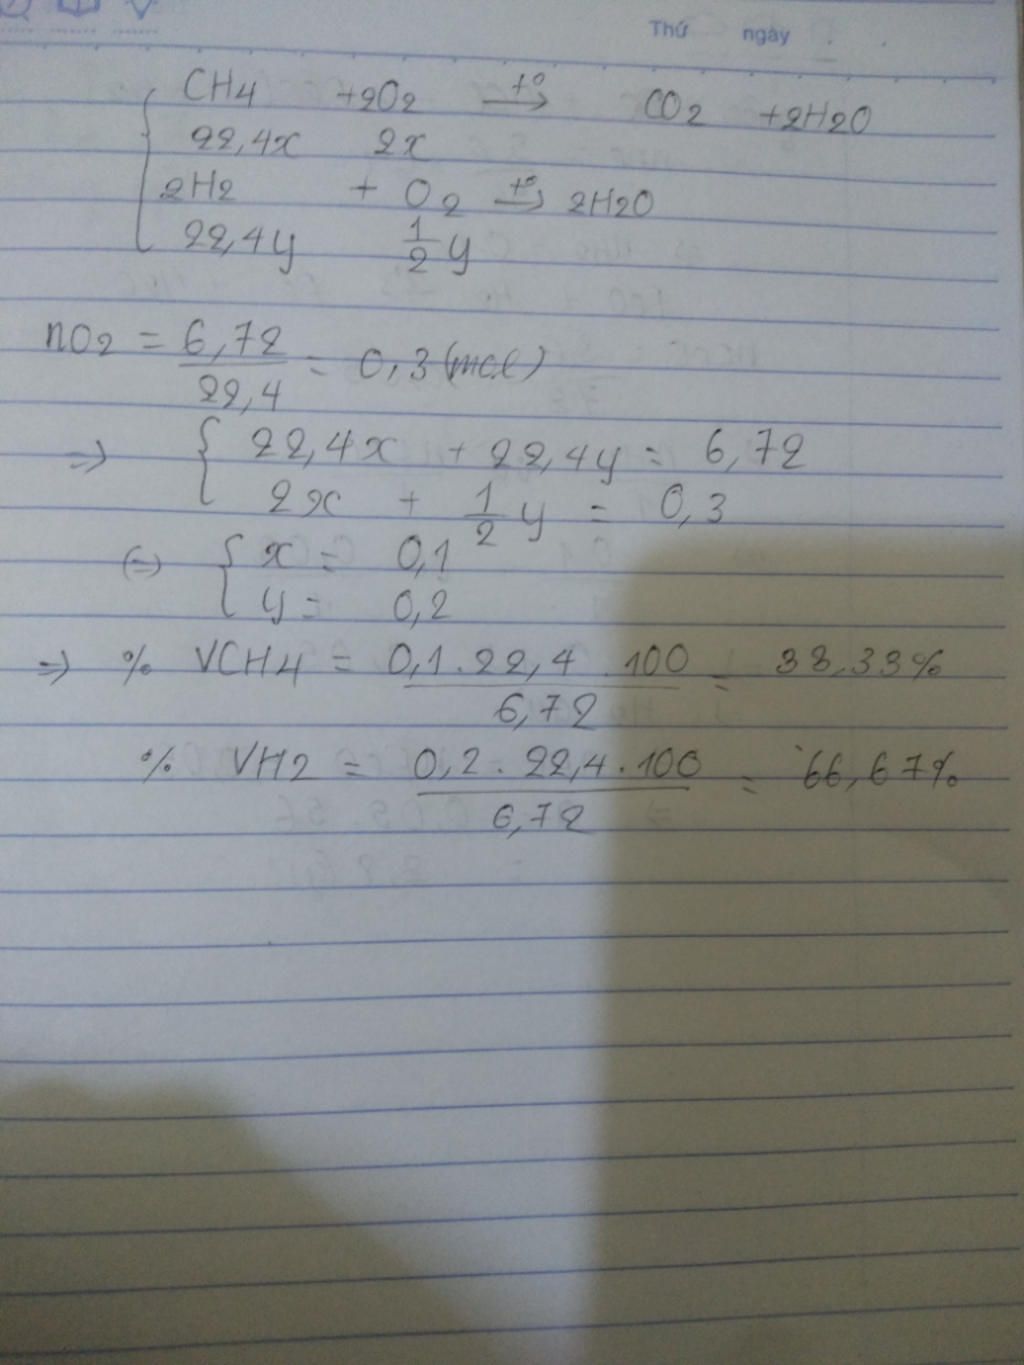 Thứ ngày
CH4 +2O2 t° → CO2 +2H2O
22,4x 2x
2H2 + O2 t° → 2H2O
22,4y 1/2 y
nO2 = 6,72/22,4 = 0,3 (mol)
=> { 22,4x + 22,4y = 6,72
2x + 1/2 y = 0,3
(=) { x = 0,1
y = 0,2
=> % VCH4 = 0,1.22,4.100/6,72 = 33,33%
% VH2 = 0,2.22,4.100/6,72 = 66,67%